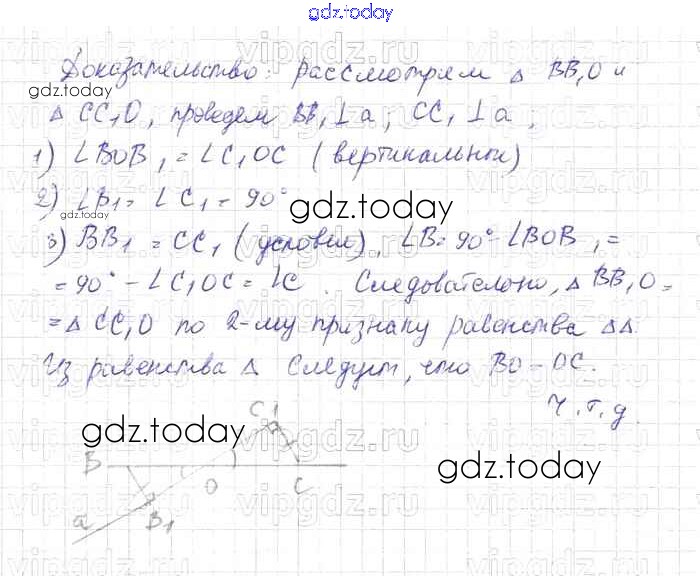 gdz.today
Доказательство: рассмотрем △ BB₁O и
gdz.today
△ CC₁O, проведем BB₁⊥a; CC₁⊥a,
1) ∠BOB₁ = ∠C₁OC (вертикальные)
2) ∠B₁ = ∠C₁ = 90°
gdz.today
gdz.today
3) BB₁ = CC₁ (условии), ∠B = 90° - ∠BOB₁ =
= 90° - ∠C₁OC = ∠C. Следователоно, △ BB₁O =
= △ CC₁O по 2-му признаку равенства △△.
Из равенства △ следует, что BO = OC.
Ч.т.д.
gdz.today
C1
B
O
C
gdz.today
a
B1
vipgdz.ru